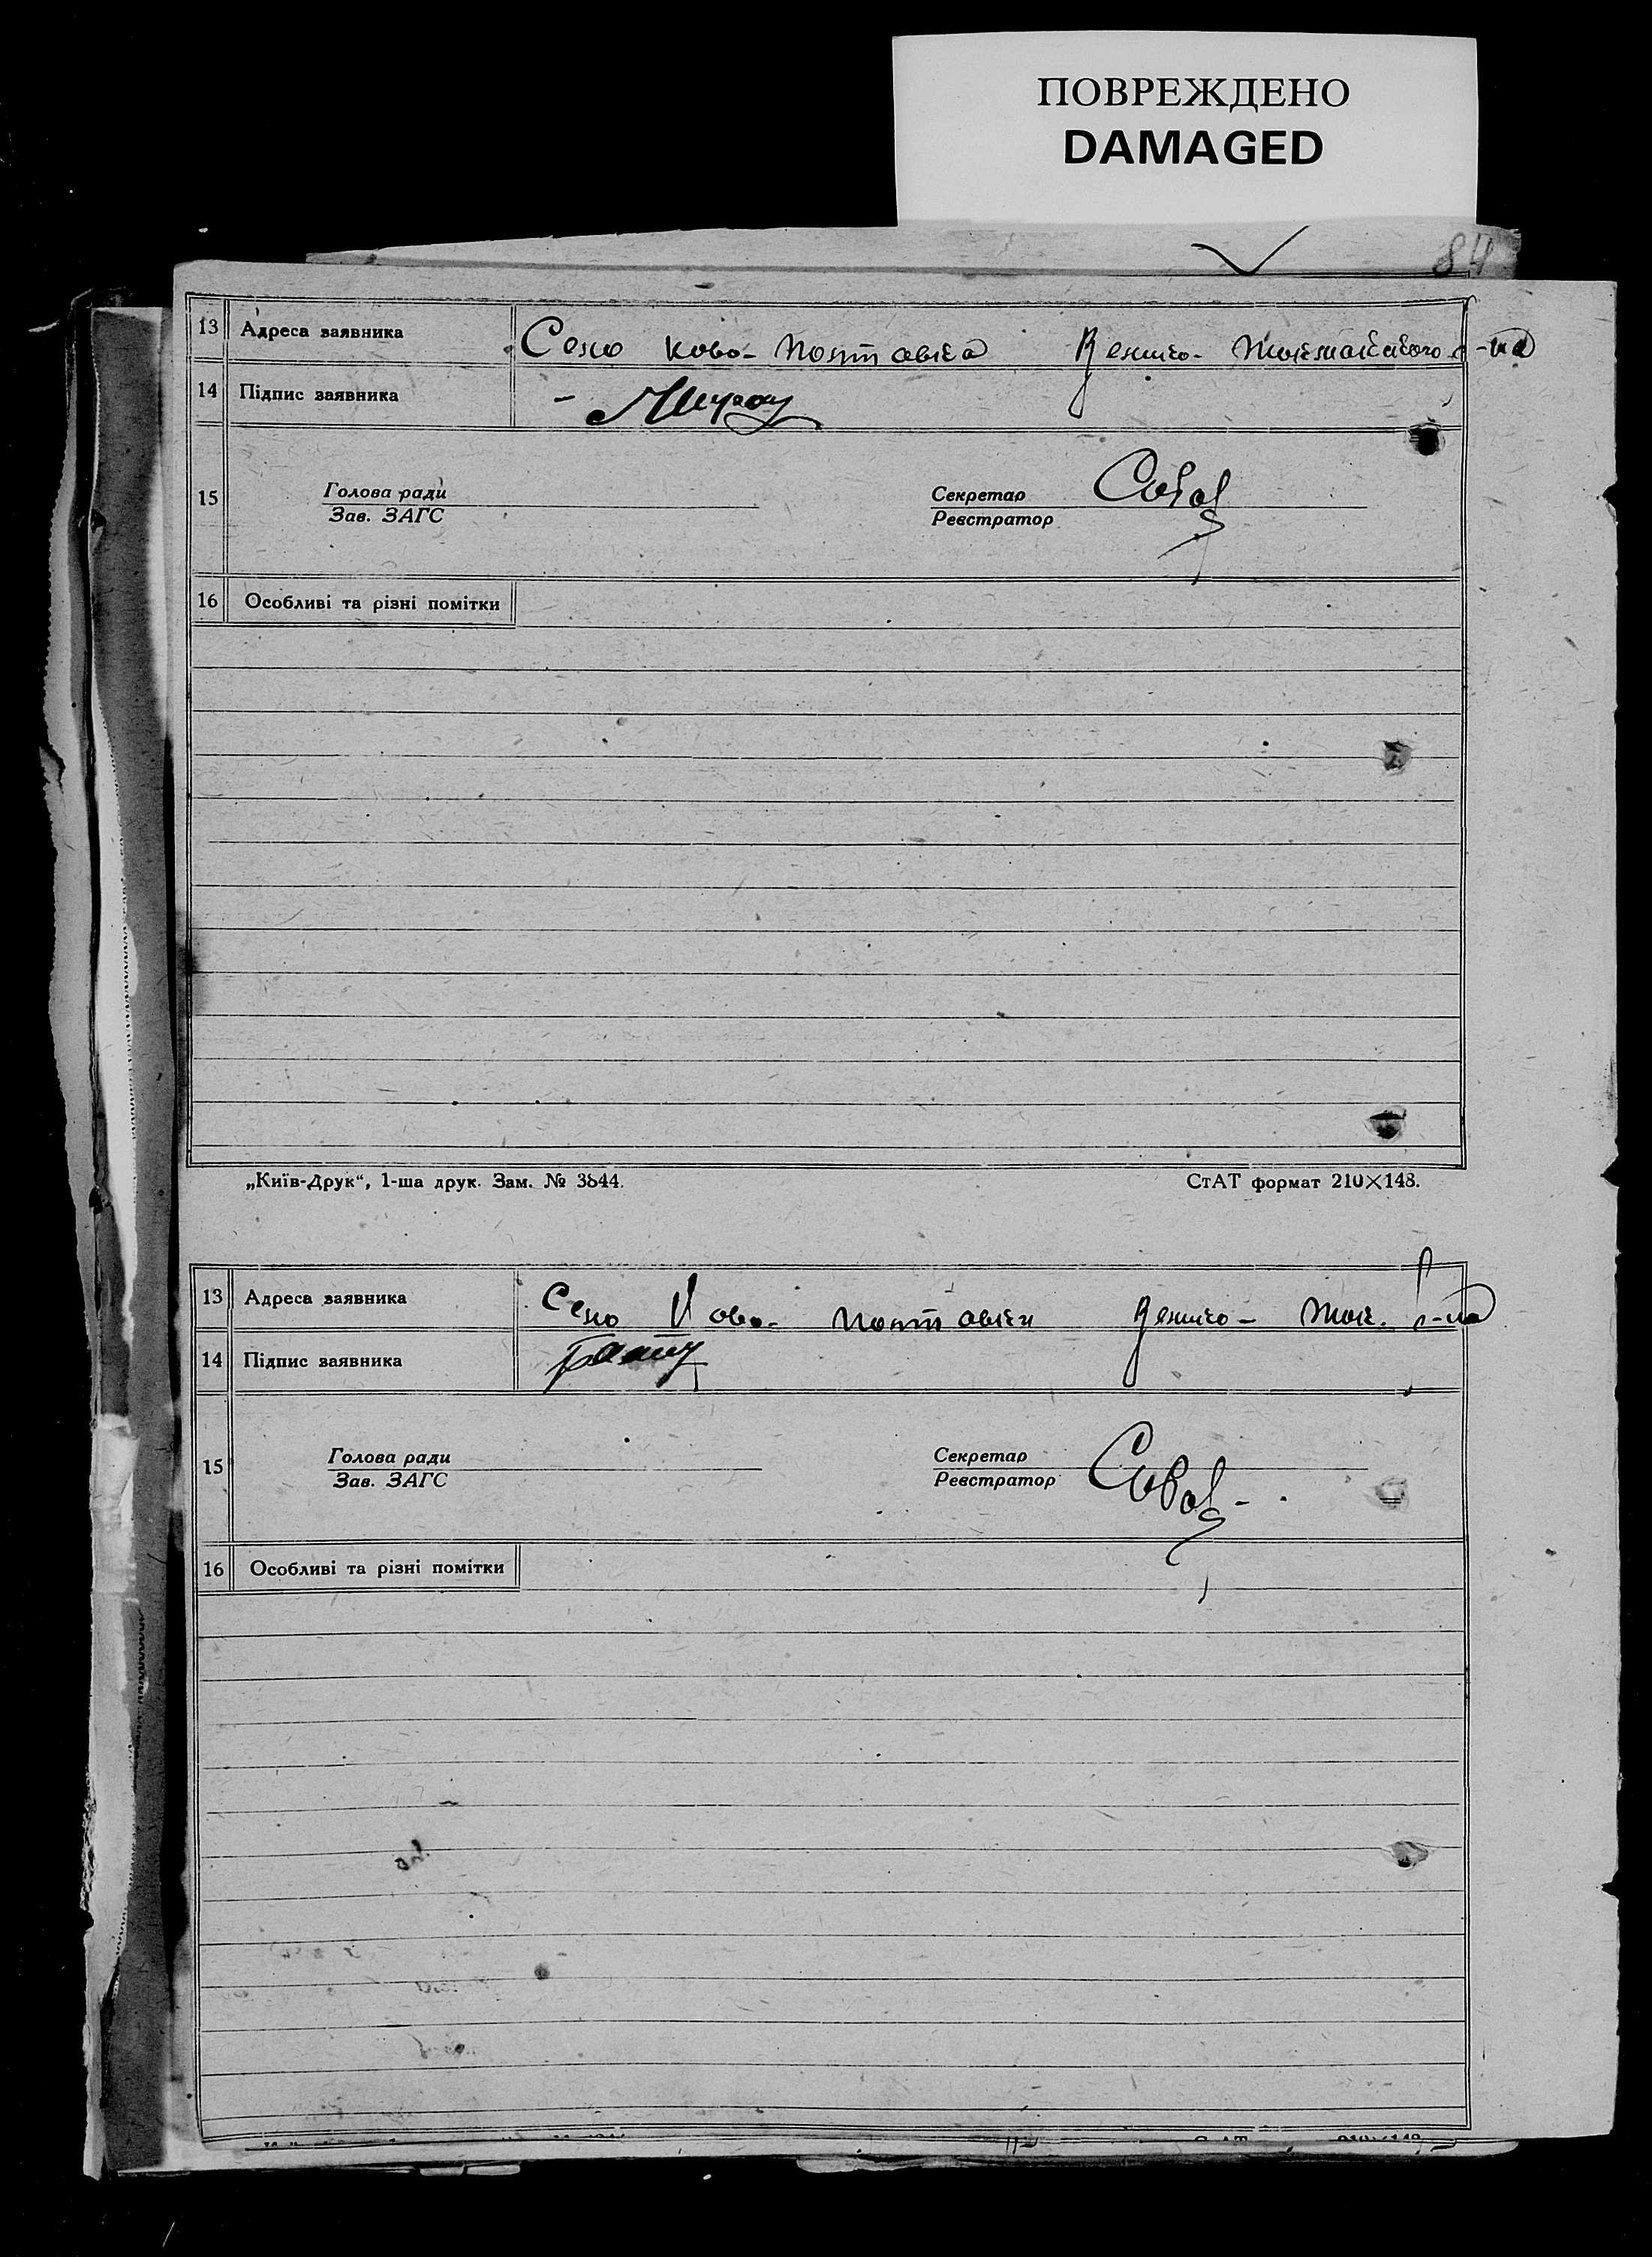 ПОВРЕЖДЕНО
DAMAGED
84
13 Адреса заявника Село Ново-Полтавка Велико-Токмакського р-на
14 Підпис заявника
15 Голова ради Секретар
Зав. ЗАГС Реєстратор
16 Особливі та різні помітки
„Київ-Друк“, 1-ша друк. Зам. № 3844. СтАТ формат 210×148.
13 Адреса заявника Село Ново-Полтавки Велико-Ток. р-на
14 Підпис заявника
15 Голова ради Секретар
Зав. ЗАГС Реєстратор
16 Особливі та різні помітки